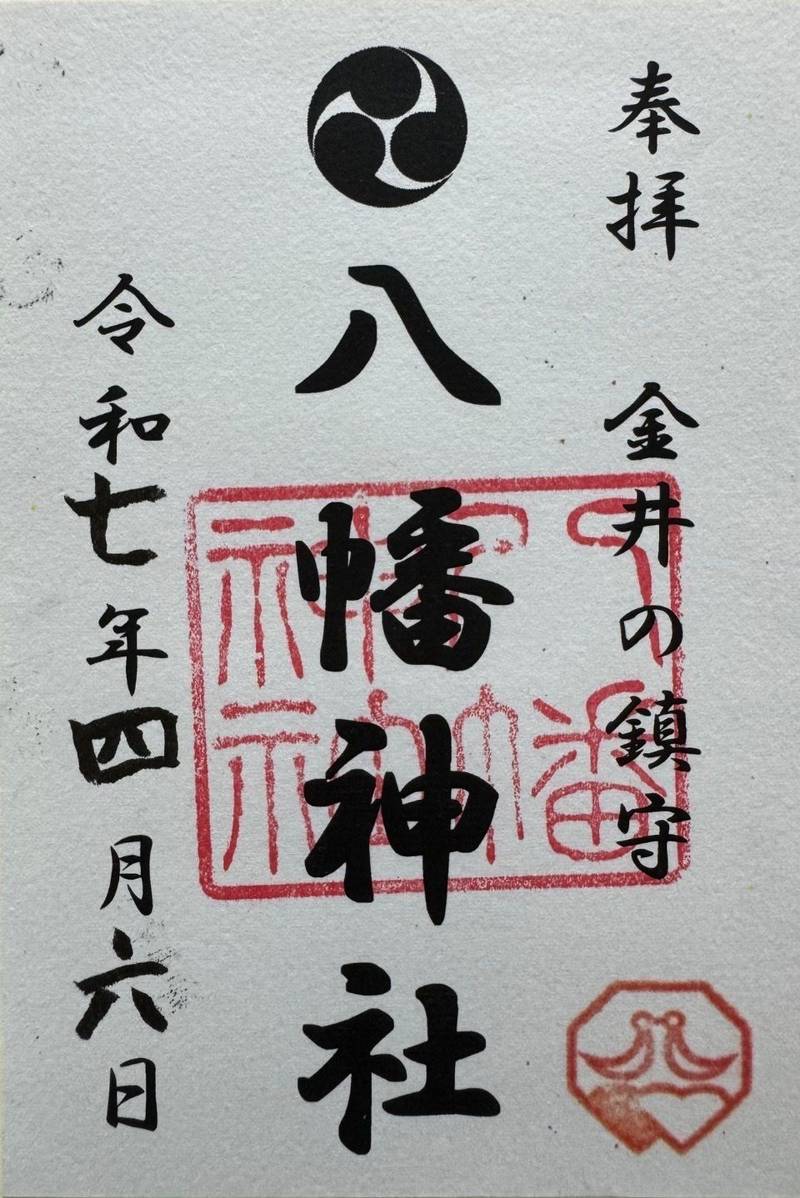 奉拝 金井の鎮守
八幡神社
令和七年四月六日